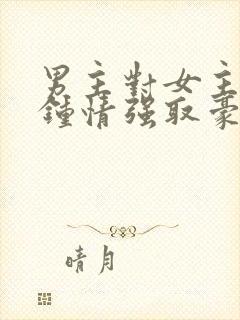 男主對女主
鍾情强取豪
晴月